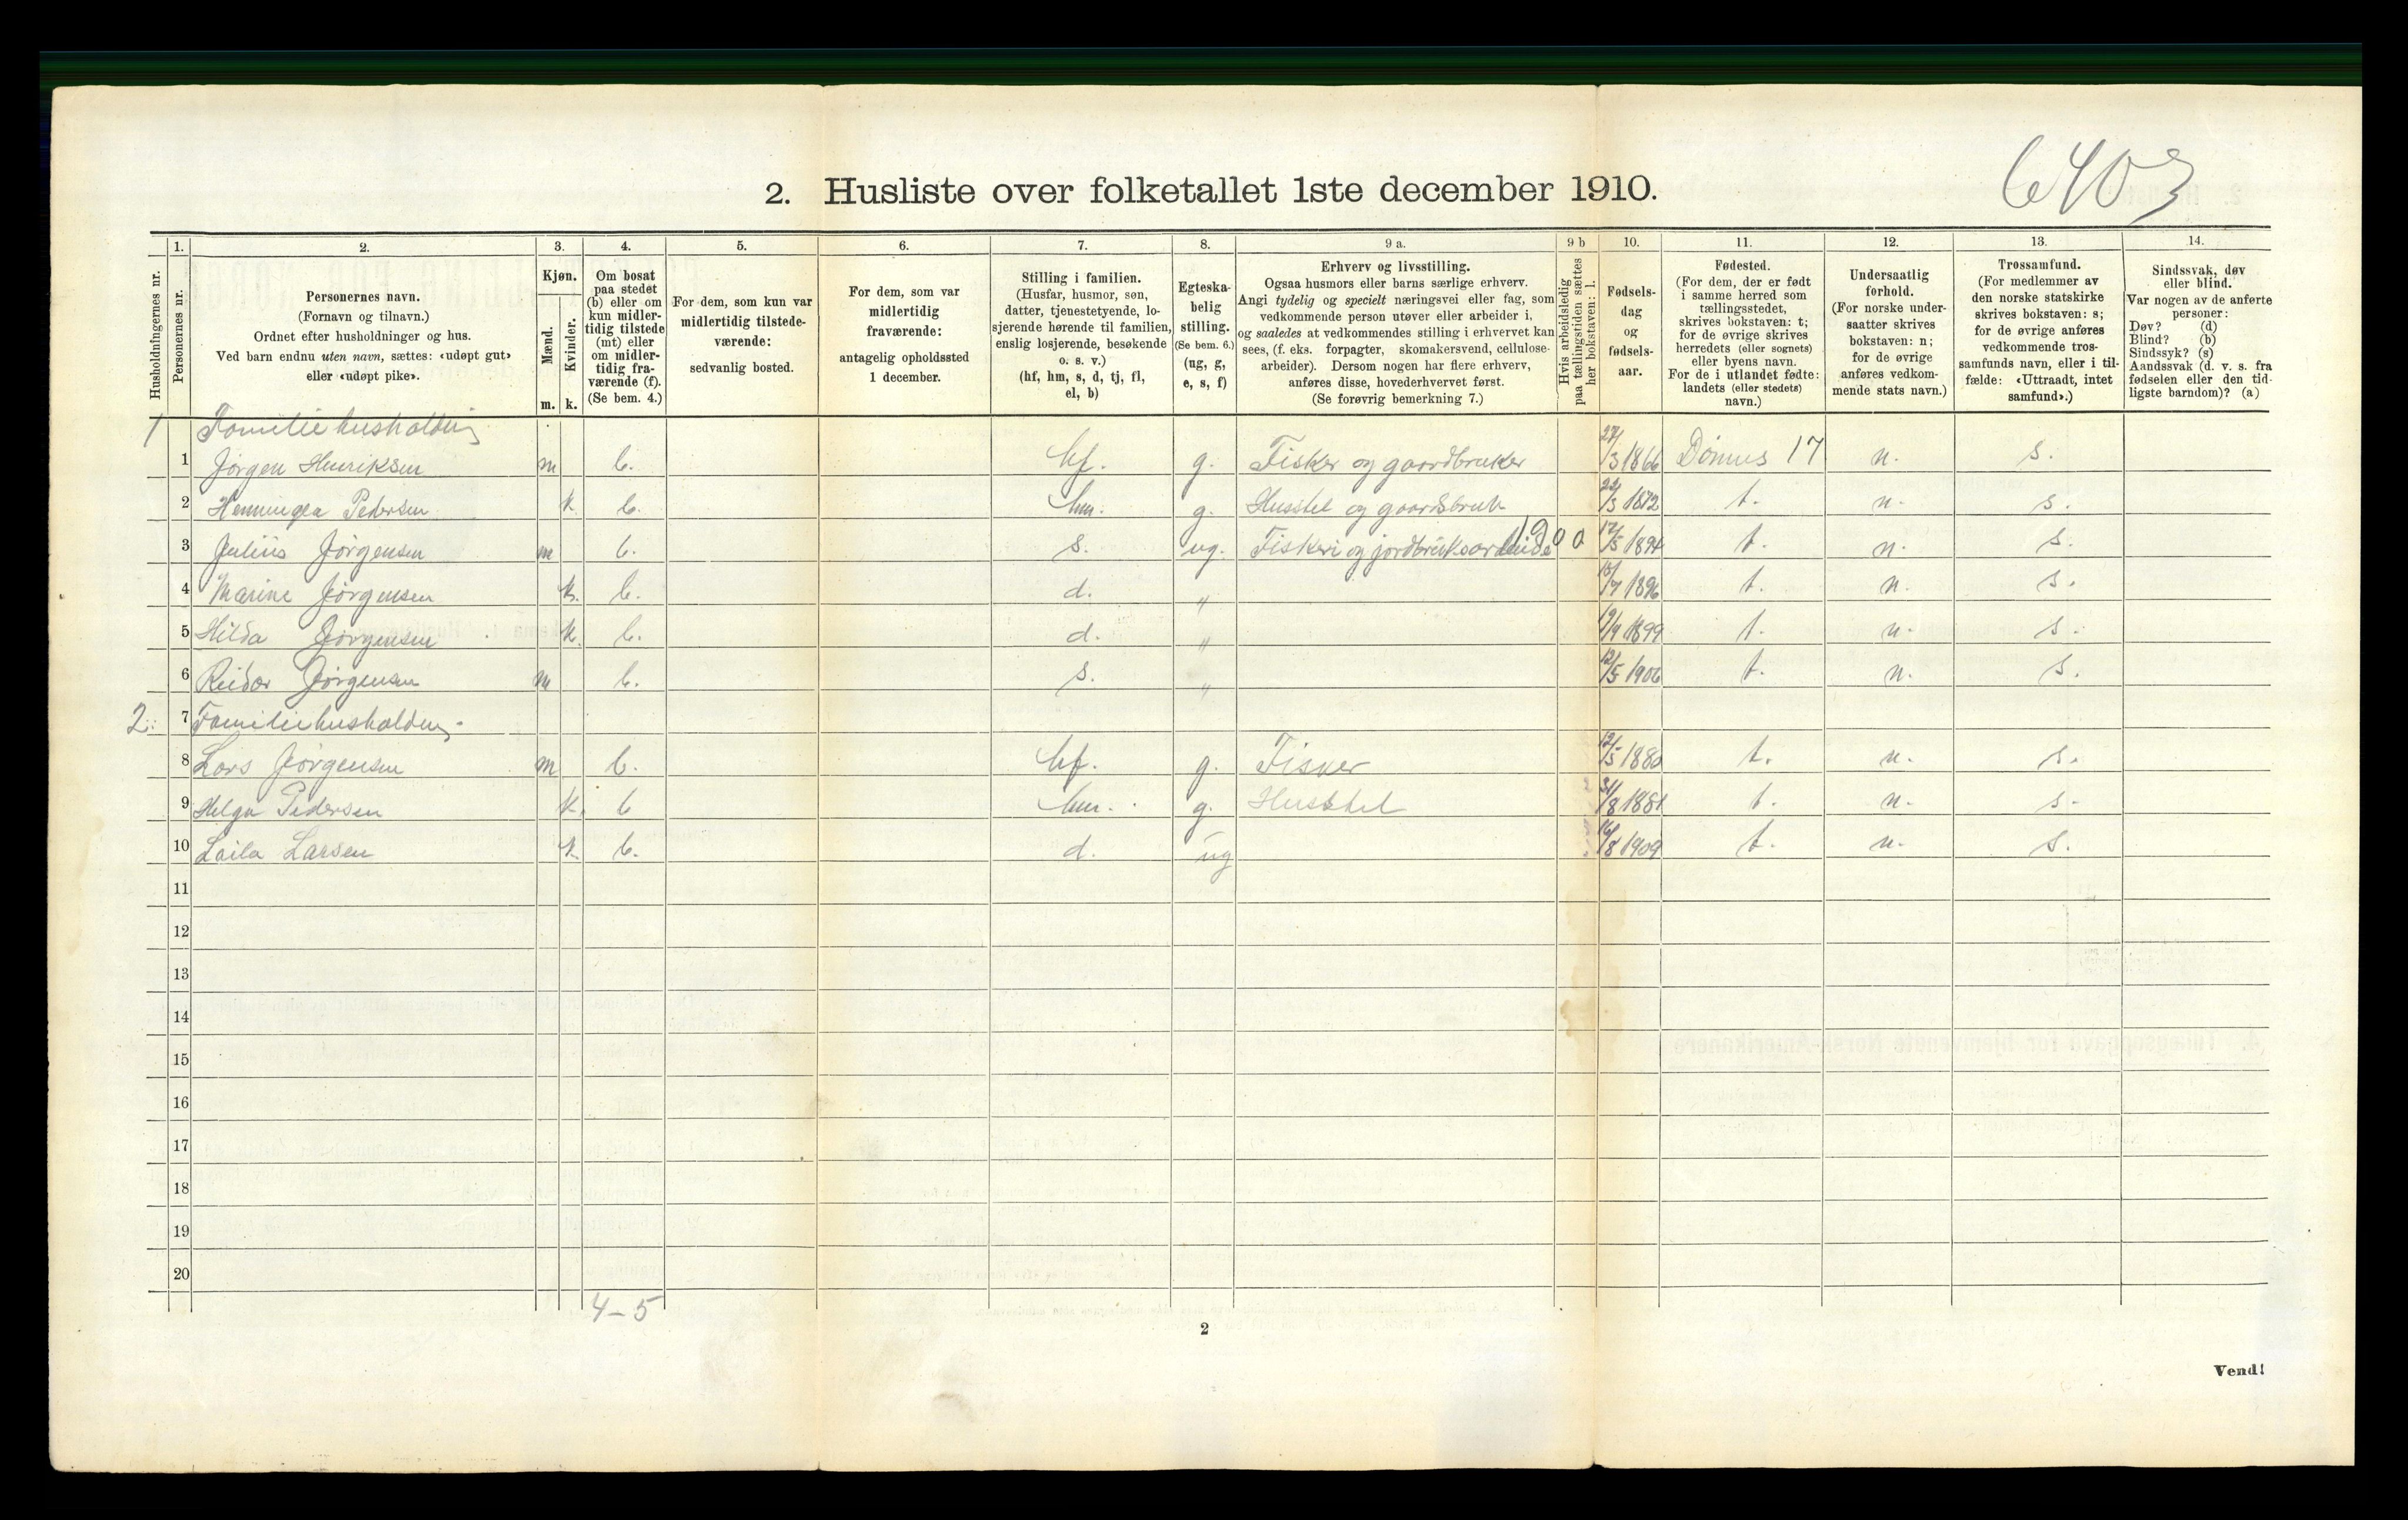 6403
2. Husliste over folketallet 1ste december 1910.
Husholdningernes nr.
1.
Personernes nr.
2.
Personernes navn.
(Fornavn og tilnavn.)
Ordnet efter husholdninger og hus.
Ved barn endnu uten navn, sættes: «udøpt gut»
eller «udøpt pike».
3.
Kjøn.
Mænd.
Kvinder.
m. k.
4.
Om bosat
paa stedet
(b) eller om
kun midler-
tidig tilstede
(mt) eller
om midler-
tidig fra-
værende (f).
(Se bem. 4.)
5.
For dem, som kun var
midlertidig tilstede-
værende:
sedvanlig bosted.
6.
For dem, som var
midlertidig
fraværende:
antagelig opholdssted
1 december.
7.
Stilling i familien.
(Husfar, husmor, søn,
datter, tjenestetyende, lo-
sjerende hørende til familien,
enslig losjerende, besøkende
o. s. v.)
(hf, hm, s, d, tj, fl,
el, b)
8.
Egteska-
belig
stilling.
(Se bem. 6.)
(ug, g,
e, s, f)
9 a.
Erhverv og livsstilling.
Ogsaa husmors eller barns særlige erhverv.
Angi tydelig og specielt næringsvei eller fag, som
vedkommende person utøver eller arbeider i,
og saaledes at vedkommendes stilling i erhvervet kan
sees, (f. eks. forpagter, skomakersvend, cellulose-
arbeider). Dersom nogen har flere erhverv,
anføres disse, hovederhvervet først.
(Se forøvrig bemerkning 7.)
9 b
Hvis arbeidsledig
paa tællingstiden sættes
her bokstaven: l.
10.
Fødsels-
dag
og
fødsels-
aar.
11.
Fødested.
(For dem, der er født
i samme herred som
tællingsstedet,
skrives bokstaven: t;
for de øvrige skrives
herredets (eller sognets)
eller byens navn.
For de i utlandet fødte:
landets (eller stedets)
navn.)
12.
Undersaatlig
forhold.
(For norske under-
saatter skrives
bokstaven: n;
for de øvrige
anføres vedkom-
mende stats navn.)
13.
Trossamfund.
(For medlemmer av
den norske statskirke
skrives bokstaven: s;
for de øvrige anføres
vedkommende tros-
samfunds navn, eller i til-
fælde: «Uttraadt, intet
samfund».)
14.
Sindssvak, døv
eller blind.
Var nogen av de anførte
personer:
Døv? (d)
Blind? (b)
Sindssyk? (s)
Aandssvak (d. v. s. fra
fødselen eller den tid-
ligste barndom)? (a)
1 Familiehusholdning
1 Jørgen Henriksen m b. hf. g. Fisker og gaardbruker 27/3 1866 Dønnes 17 n. s.
2 Henningea Pedersen k. b. hm. g. Husstel og gaardsbruk 22/3 1872 t. n. s.
3 Julius Jørgensen m b. s. ug. Fiskeri og jordbruksarbeide 1900 12/5 1894 t. n. s.
4 Marine Jørgensen k. b. d. " 15/7 1896 t. n. s.
5 Hilda Jørgensen k. b. d. " 19/9 1899 t. n. s.
6 Reidar Jørgensen m b. s. " 12/5 1906 t. n. s.
2. 7 Familiehusholdning
8 Lars Jørgensen m b. hf. g. Fisker 12/5 1880 t. n. s.
9 Helga Pedersen k. b hm. g. Husstel 31/8 1881 t. n. s.
10 Laila Larsen k. b. d. ug 16/8 1909 t. n. s.
11
12
13
14
15
16
17
18
19
20
4-5
2
Vend!